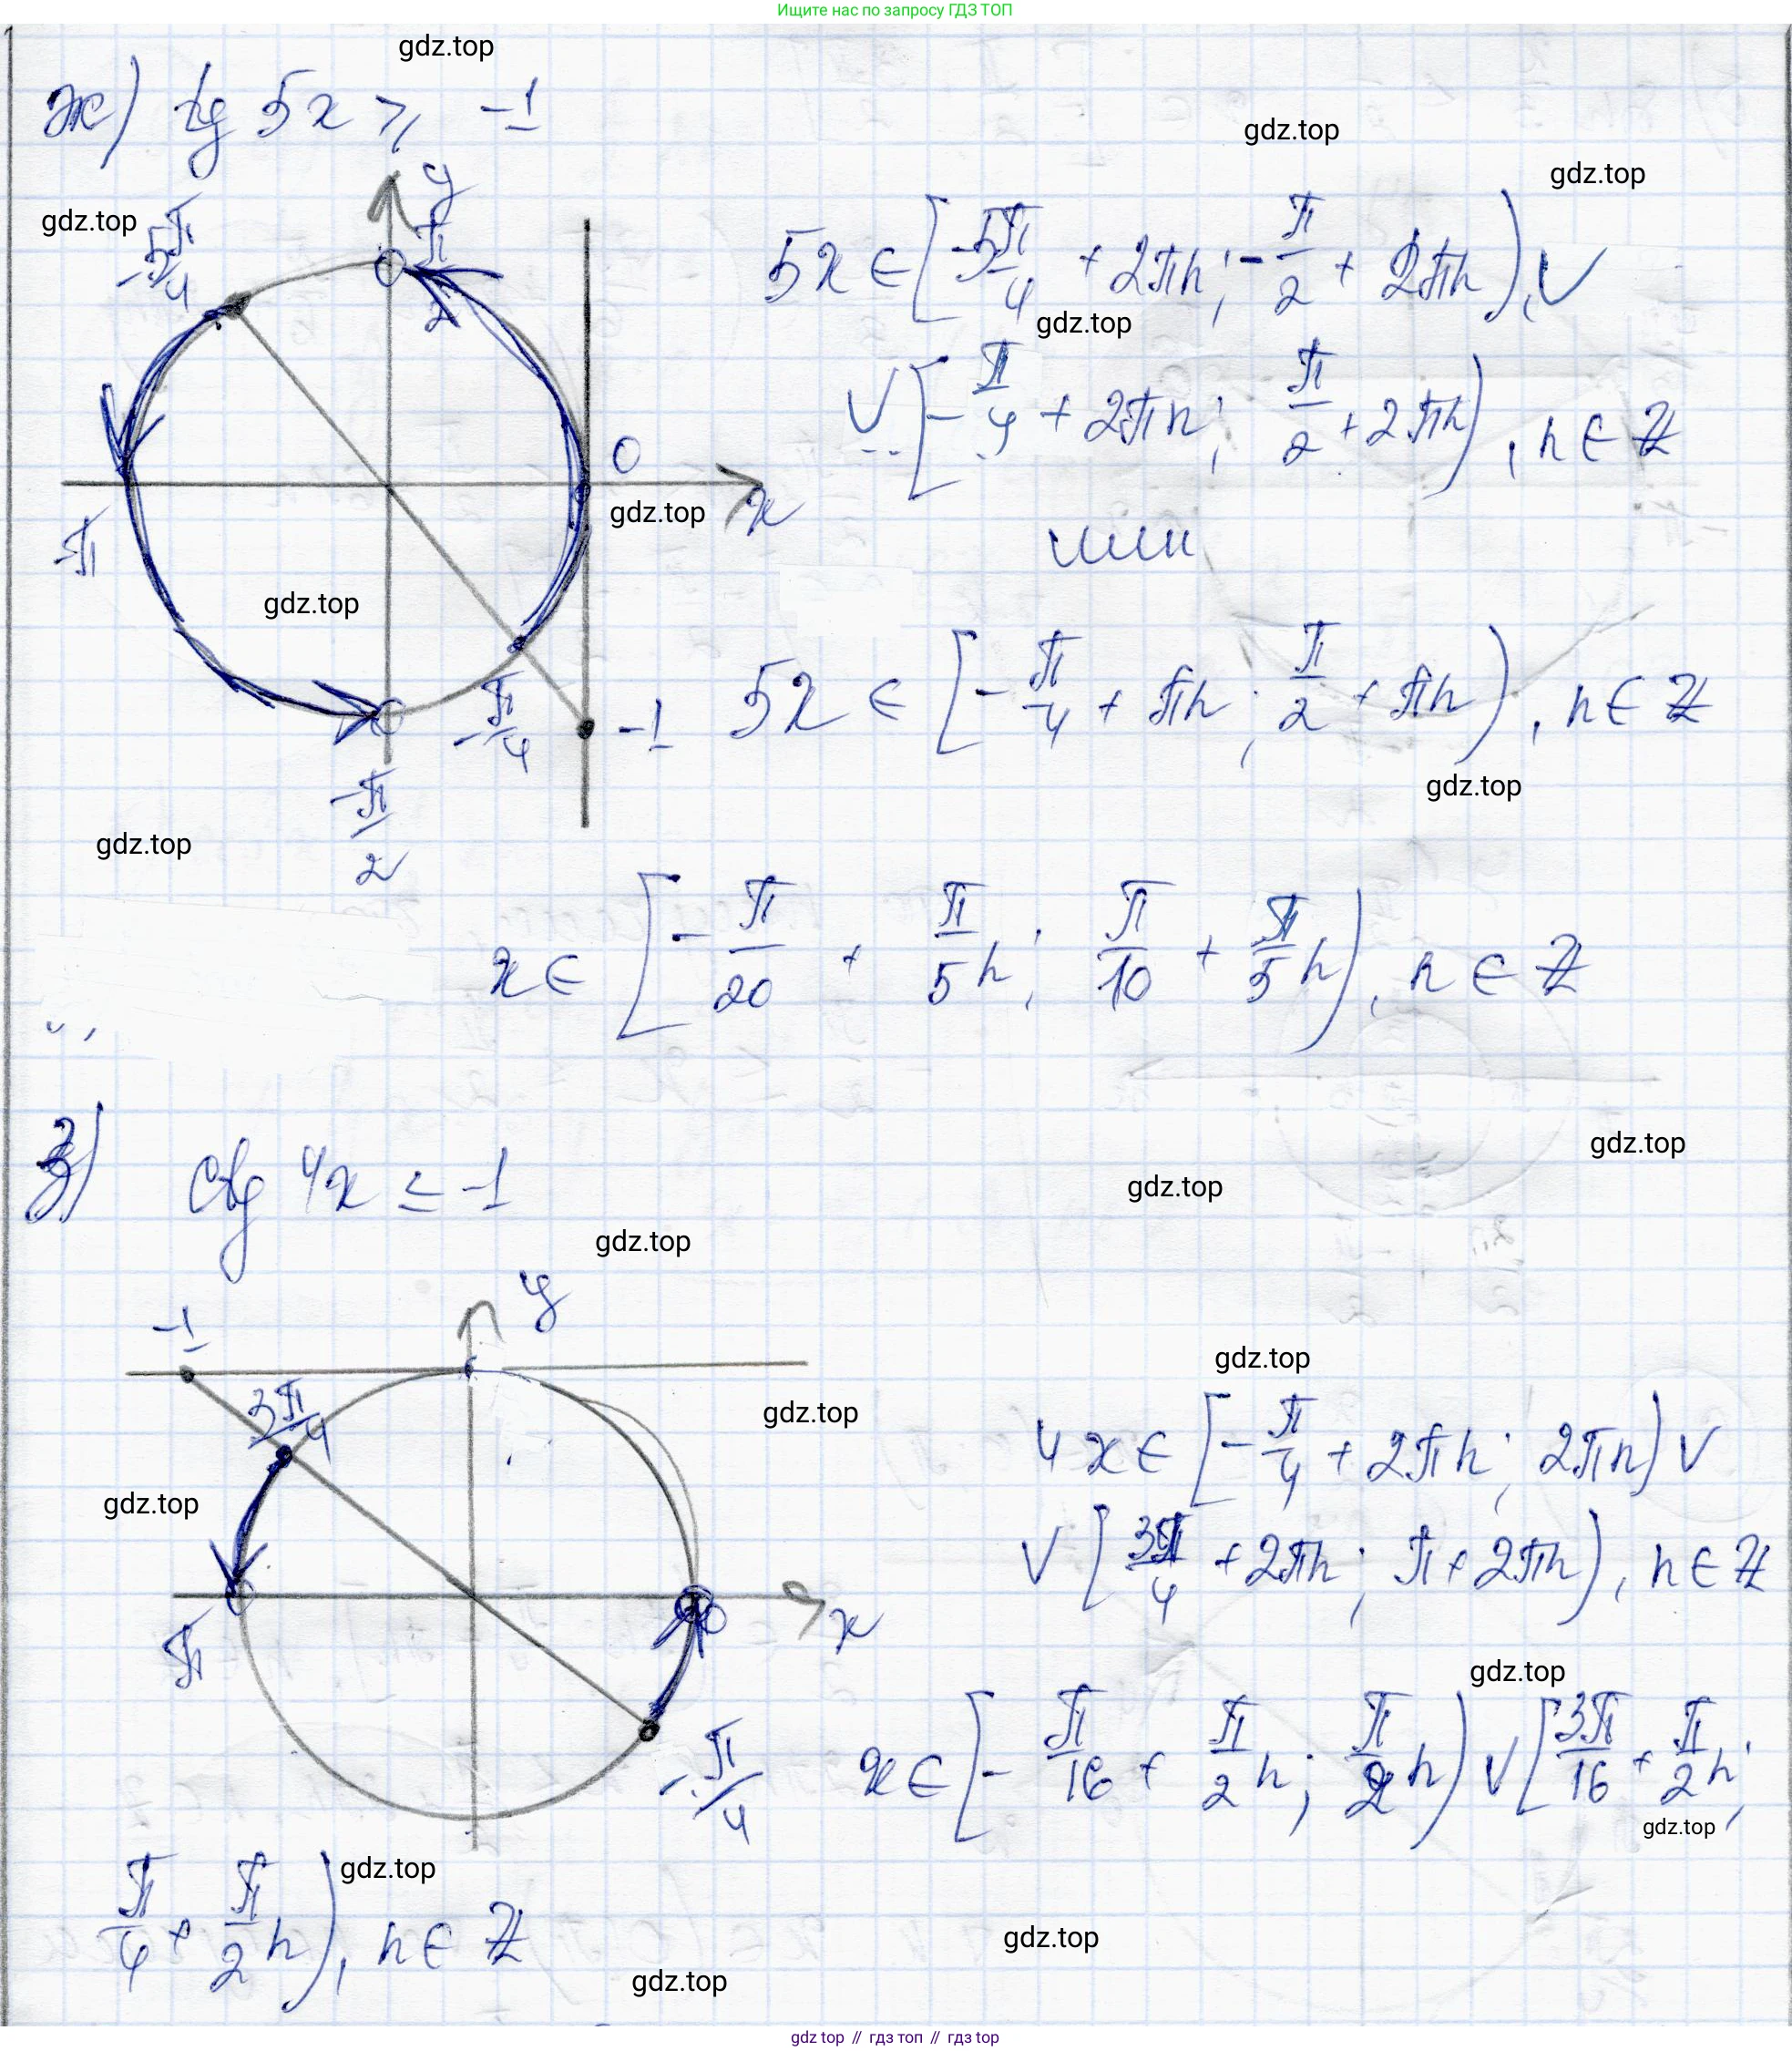 Ищите нас по запросу ГДЗ ТОП
gdz.top
ж) tg 5x ⩾ -1
gdz.top
gdz.top
gdz.top
y
-5π/4
π/2
5x ∈ [-5π/4 + 2πn; -π/2 + 2πn), ∨
gdz.top
∨ [-π/4 + 2πn; π/2 + 2πn), n ∈ Z
0
x
gdz.top
-π
или
gdz.top
5x ∈ [-π/4 + πn; π/2 + πn), n ∈ Z
-π/4
-1
gdz.top
-π/2
gdz.top
x ∈ [-π/20 + π/5 n; π/10 + π/5 n), n ∈ Z
з) ctg 4x ≤ -1
gdz.top
gdz.top
gdz.top
y
-1
gdz.top
3π/4
gdz.top
4x ∈ [-π/4 + 2πn; 2πn) ∨
gdz.top
∨ [3π/4 + 2πn; π + 2πn), n ∈ Z
x
π
gdz.top
-π/4
x ∈ [-π/16 + π/2 n; π/2 n) ∨ [3π/16 + π/2 n;
gdz.top
π/4 + π/2 n), n ∈ Z
gdz.top
gdz.top
gdz.top
gdz top // гдз топ // gdz top